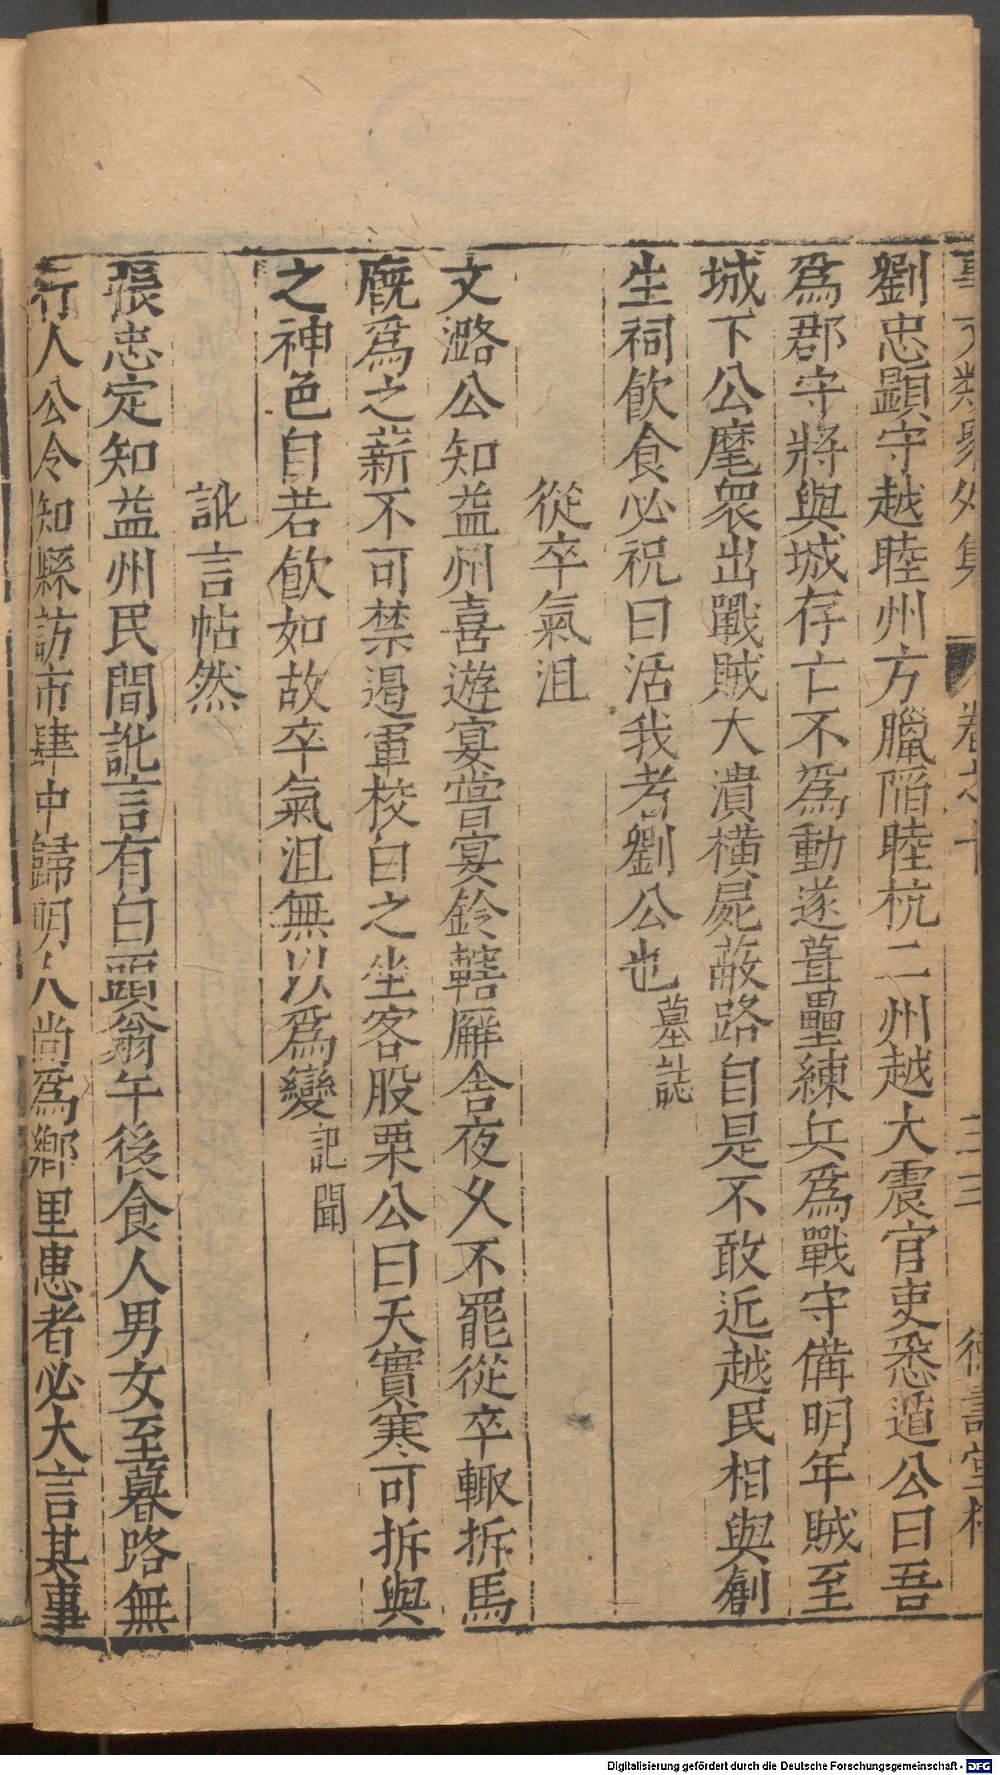 事文類聚外集 卷之十 三三 德壽堂梓
劉忠顯守越睦州方臘陷睦杭二州越大震官吏悉遁公曰吾
爲郡守將與城存亡不爲動遂葺壘練兵爲戰守備明年賊至
城下公麾衆出戰賊大潰橫屍蔽路自是不敢近越民相與創
生祠飲食必祝曰活我者劉公也墓誌
從卒氣沮
文潞公知益州喜遊宴嘗宴鈴轄廨舎夜乆不罷從卒輙拆馬
廐爲之薪不可禁遏軍校白之坐客股栗公曰天實寒可拆與
之神色自若飲如故卒氣沮無以爲變記聞
訛言帖然
張忠定知益州民間訛言有白頭翁午後食人男女至暮路無
行人公令知縣訪市肆中歸明人尚爲鄉里患者必大言其事
Digitalisierung gefördert durch die Deutsche Forschungsgemeinschaft - DFG